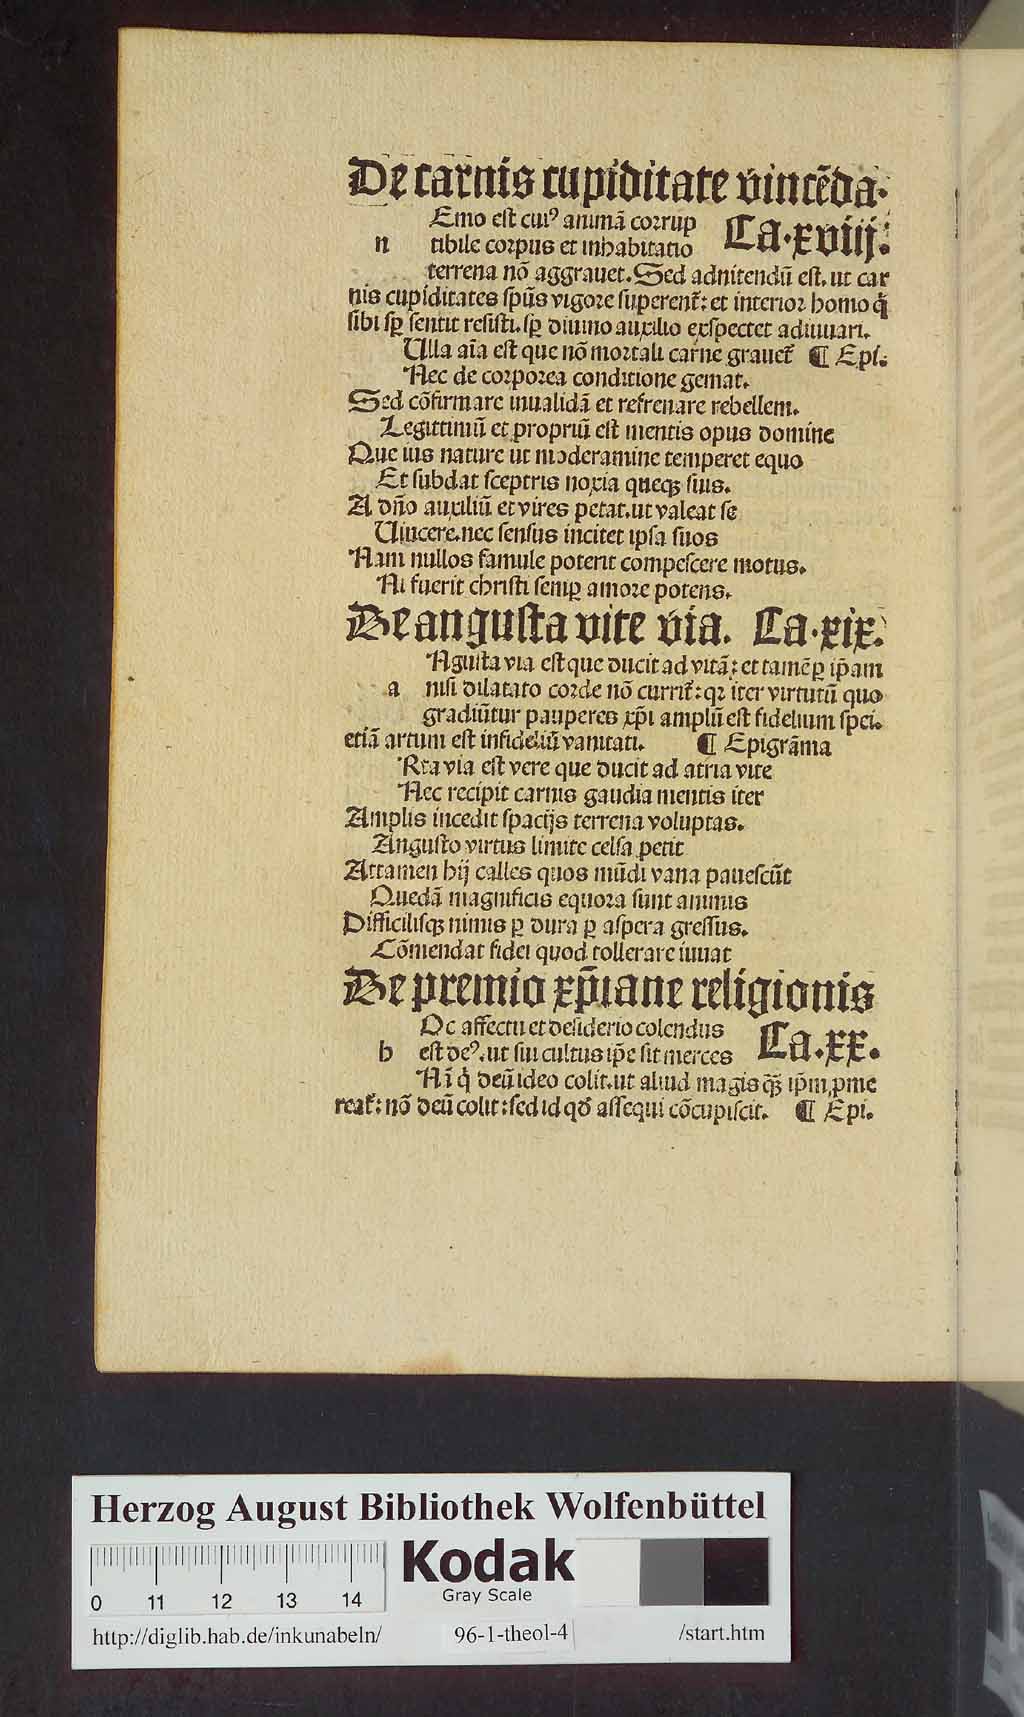 De carnis cupiditate vincēda.
Emo est cuiꝰ animā corrup
Ca.xviij.
n tibile corpus et inhabitatio
terrena nō aggrauet. Sed adnitendū est. ut car
nis cupiditates spūs vigore superent̄: et interior homo q̄
sibi sꝑ sentit resisti. sꝑ diuino auxilio exspectet adiuuari.
Ulla aīa est que nō mortali carne grauet̄ ¶ Epi.
Nec de corporea conditione gemat.
Sed cōfirmare inualidā et refrenare rebellem.
Legittimū et propriū est mentis opus domine
Que ius nature ut moderamine temperet equo
Et subdat sceptris noxia queqꝫ suis.
A dño auxiliū et vires petat. ut valeat se
Uincere. nec sensus incitet ipsa suos
Nam nullos famule poterit compescere motus.
Ni fuerit christi semꝑ amore potens.
De angusta vite via. Ca.xix.
Ngusta via est que ducit ad vitā: et tamē ꝑ ip̄am
a nisi dilatato corde nō currit̄: qꝛ iter virtutū quo
gradiūtur pauperes xp̄i amplū est fidelium spei.
etiā artum est infideliū vanitati. ¶ Epigrāma
Rta via est vere que ducit ad atria vite
Nec recipit carnis gaudia mentis iter
Amplis incedit spacijs terrena voluptas.
Angusto virtus limite celsa petit
Attamen hij calles quos mūdi vana pauescūt
Quedā magnificis equora sunt animis
Difficilisqꝫ nimis ꝑ dura ꝑ aspera gressus.
Cōmendat fidei quod tollerare iuuat
De premio xp̄iane religionis
Oc affectu et desiderio colendus
Ca.xx.
h est deꝰ. ut sui cultus ip̄e sit merces
Nā q̄ deū ideo colit. ut aliud magis qꝫ̄ ip̄m ꝓme
reat̄: nō deū colit: sed id qd̄ assequi cōcupiscit. ¶ Epi.
Herzog August Bibliothek Wolfenbüttel
Kodak
Gray Scale
0 11 12 13 14
http://diglib.hab.de/inkunabeln/ 96-1-theol-4 /start.htm